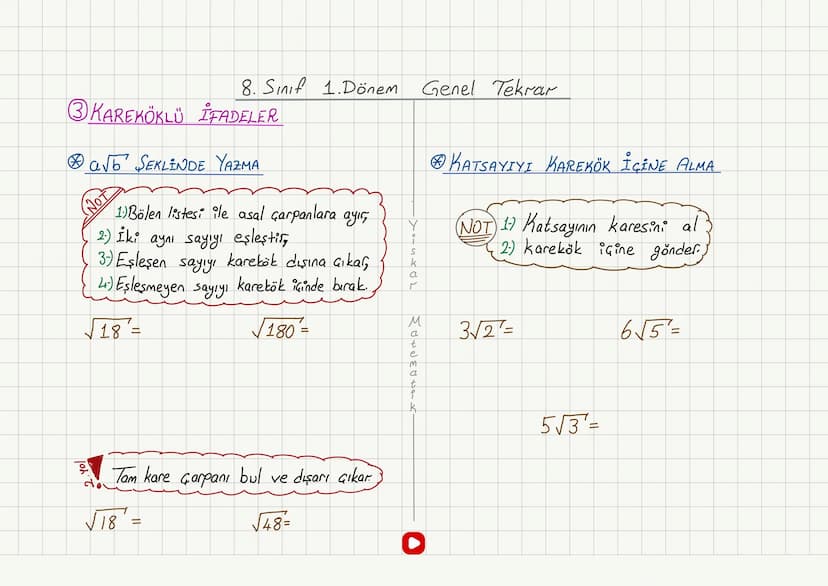 8. Sınıf 1.Dönem Genel Tekrar
③ KAREKÖKLÜ İFADELER
⊛ a√b ŞEKLİNDE YAZMA
NOT
1-)Bölen listesi ile asal çarpanlara ayır,
2-) İki aynı sayıyı eşleştir,
3-) Eşleşen sayıyı karekök dışına çıkar,
4-) Eşleşmeyen sayıyı karekök içinde bırak.
√18 = √180 =
2. yol
! Tam kare çarpanı bul ve dışarı çıkar
√18 = √48=
Yiskar Matematik
⊛ KATSAYIYI KAREKÖK İÇİNE ALMA
NOT
1-) Katsayının karesini al
2-) karekök içine gönder.
3√2 = 6√5 =
5√3 =